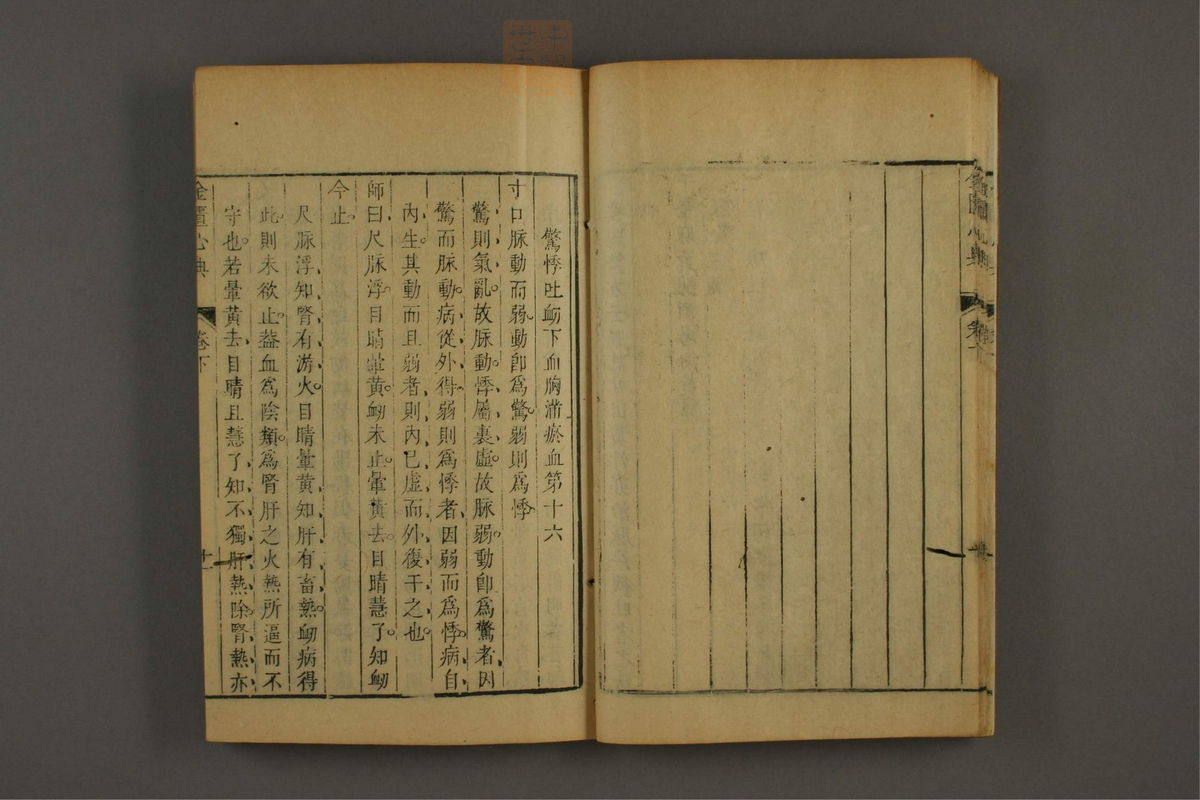 金匱心典
卷下
驚悸吐衂下血胸滿瘀血第十六
寸口脉動而弱。動卽爲驚。弱則爲悸。
驚則氣亂。故脉動。悸屬裏虛。故脉弱。動卽爲驚者、因
驚而脉動。病從外得。弱則爲悸者、因弱而爲悸。病自
內生。其動而且弱者、則內已虛、而外復干之也。
師曰。尺脉浮。目睛暈黃。衂未止。暈黃去。目睛慧了。知衂
今止。
尺脉浮、知腎有游火。目睛暈黃、知肝有畜熱。衂病得
此、則未欲止。葢血爲陰類。爲腎肝之火熱所逼而不
守也。若暈黃去、目睛且慧了、知不獨肝熱除。腎熱亦
金匱心典
卷下